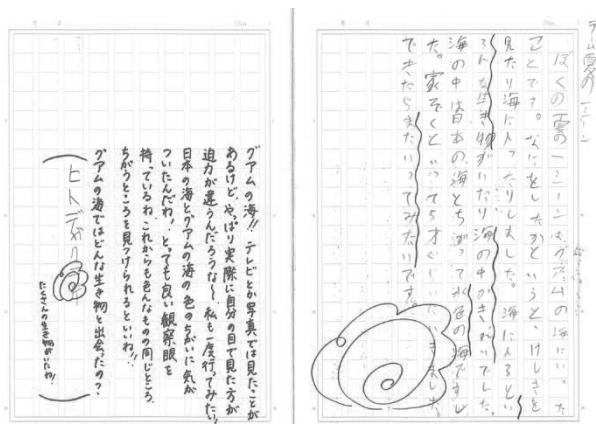 ぼくの夏の一ミリーンは、グアムの海にいった
ことです。なにをしたかというと、けしきを
見たり海に入ったりしました。海に入るとい
ろんな生き物がいたり海の中がきれいでした。
海の中は日本の海とちがって水色の海でし
た。家ぞくといって5才ぐらいに
できたらまたいってみたいです。
グアムの海!! テレビとか写真では見たことが
あるけど、やっぱり実際に自分の目で見た方が
迫力が違うんだろうな〜、私も一度行ってみたい。
日本の海とグアムの海の色のちがいに気が
ついたんだね。とっても良い観察眼を
持っているね。これからも色んなものの同じところ、
ちがうところを見つけられるといいね!!
グアムの海ではどんな生き物と出会ったの?
ヒトデかな
たくさんの生き物がいたね!